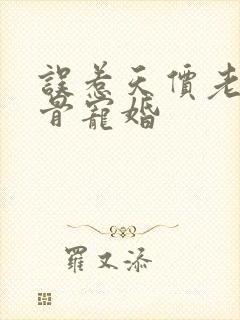 誤惹天價老
骨寵婚
羅又添